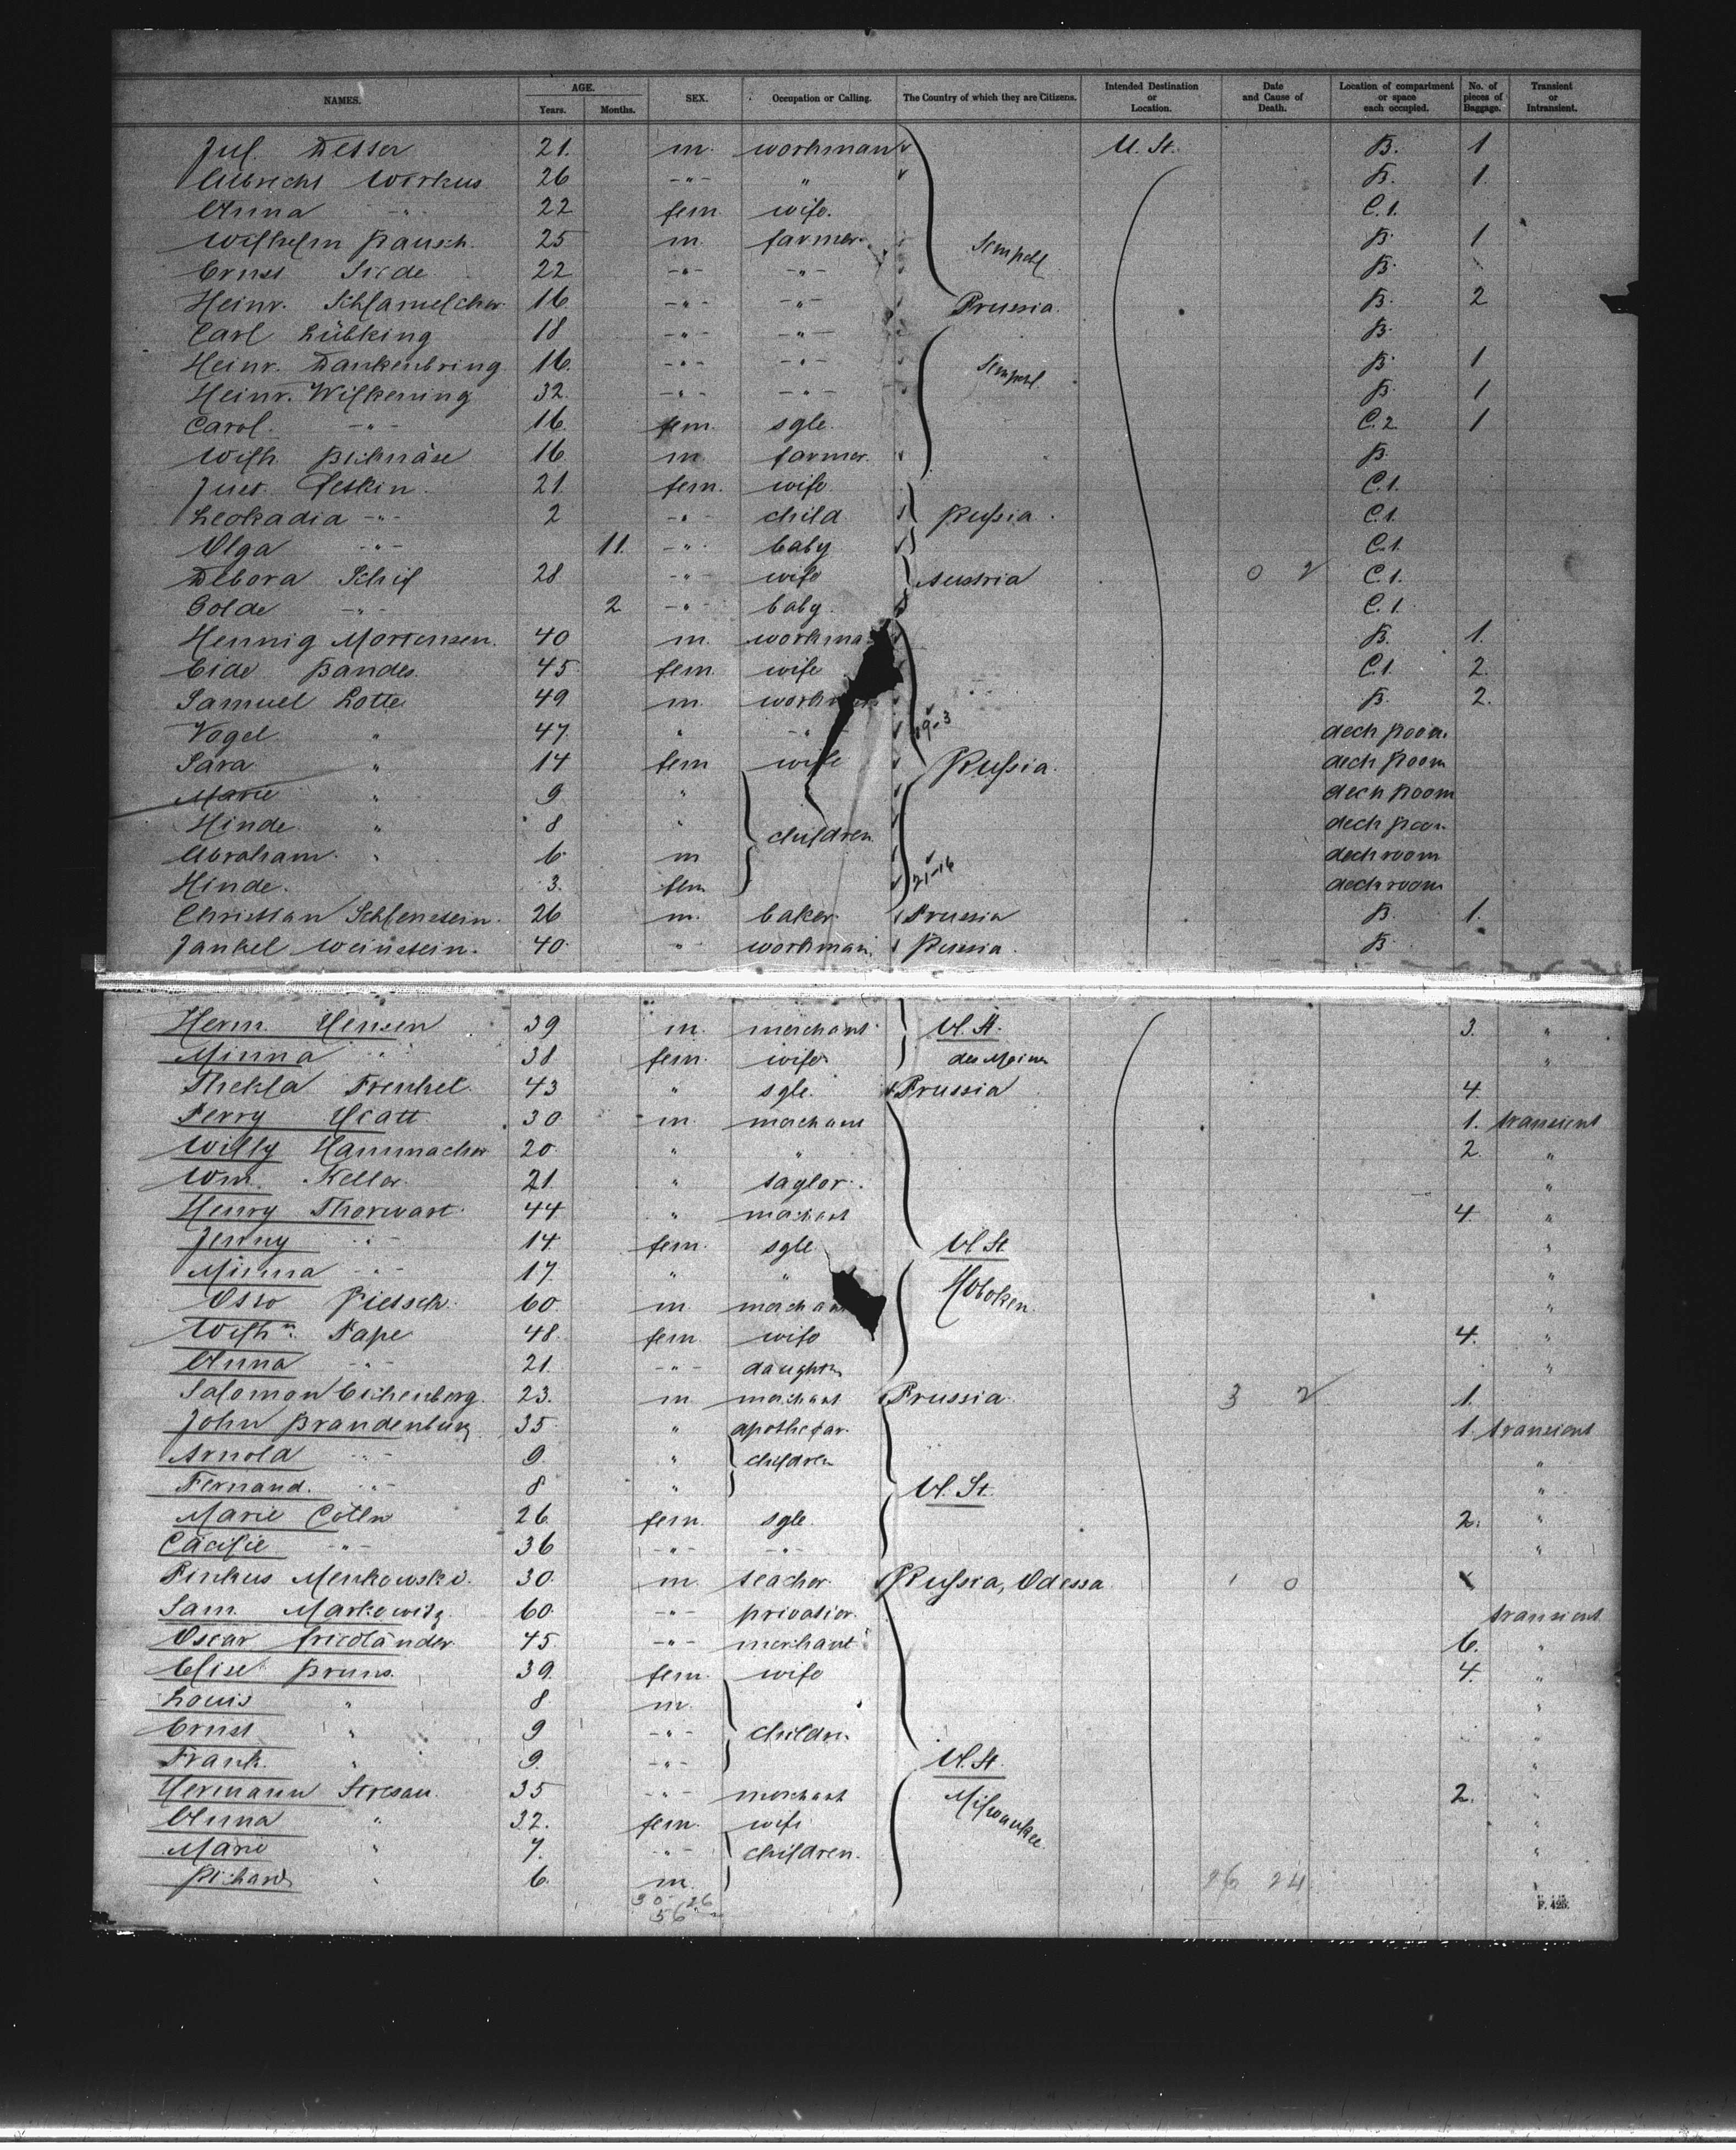 NAMES. AGE. Years. Months. SEX. Occupation or Calling. The Country of which they are Citizens. Intended Destination or Location. Date and Cause of Death. Location of compartment or space each occupied. No. of pieces of Baggage. Transient or Intransient.
Jul. 21. m. workman U. St. B. 1
Albrecht Workus 26 -"- " B. 1.
Anna -"- 22 fem. wife. C. 1.
Wilhelm Rausch. 25 m. farmer B. 1
Ernst 22 -"- -"- B.
Heinr. 16 -"- -"- Prussia. B. 2
Carl Lübking 18 -"- -"- B.
Heinr. Dankenbring 16. -"- -"- B. 1
Heinr. Wilkening 32. -"- -"- B. 1
Carol. -"- 16. fem. sgle. C. 2. 1
Wilh. 16 m. farmer. B.
21. fem. wife. C. 1.
Leokadia -"- 2 -"- child Russia. C. 1.
Olga -"- 11. -"- baby C. 1.
Debora Schif 28 -"- wife Austria 0 2 C. 1.
Golde -"- 2 -"- baby. C. 1.
Hennig Mortensen. 40 m. workma B. 1.
Bandes. 45 fem. wife C. 1. 2.
Samuel Lotte 49 m. workman B. 2.
Vogel " 47. " -"- 19-3 deck room.
Sara " 14 fem wife Russia. deck room
Marie " 9 " deck room
Hinde " 8 " children deck room
Abraham. " 6 m deck room
Hinde. 3. fem 21-16 deck room
Christian 26 m. baker. Prussia B. 1.
Jankel Weinstein. 40. " workman. Russia. B.
Herm. Hensen 39 m. merchant U. St. 3. "
Minna " 38 fem. wife des Moines "
Thekla Frenkel. 43 " sgle. Prussia 4.
Perry Hiatt. 30. m. merchant 1. transient
Willy Hammacher 20. " " 2. "
Wm. Keller 21. " saylor. "
Henry Thorwart. 44 " merchant 4. "
Jenny -"- 14. fem. sgle U. St. "
Minna -"- 17. " " Hoboken. "
Otto Pietsch. 60 m. merchant "
Wilh. Pape 48. fem. wife 4. "
Anna -"- 21. -"- daughter "
Salomon Eichenberg. 23. m. merchant Prussia. 3 2 1.
John Brandenburg 35 " apothekar. 1. transient
Arnold -"- 9. " children "
Fernand. -"- 8 " U. St. "
Marie Colln 26 fem. sgle. 2. "
Cäcilie -"- 36 -"- -"- "
Pinkus Menkowski. 30. m. teacher. Russia, Odessa 1 0
Sam. Markowitz 60. -"- privatier. transient
Oscar Friedländer. 45. -"- merchant 6. "
Elise Bruns. 39. fem. wife 4. "
Louis " 8. m. "
Ernst " 9 -"- children "
Frank. " 9. -"- U. St. "
Hermann Stresau. 35 -"- merchant Milwaukee 2. "
Anna " 32. fem. wife "
Marie " 7. -"- children. "
Richard " 6. m. 26 24 "
30 26
56
F. 425.